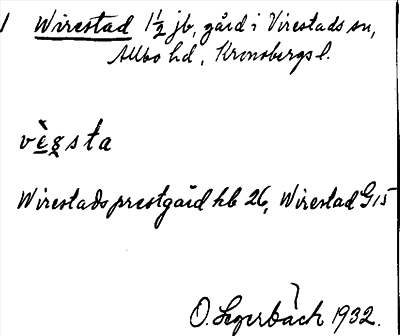 1 Wirestad 1½ jb, gård i Virestads sn,
Allbo hd, Kronobergs l.
vȩ̀ʀsta
Wirestads prestgård hb 26, Wirestad G15
O. Segerbäck 1932.